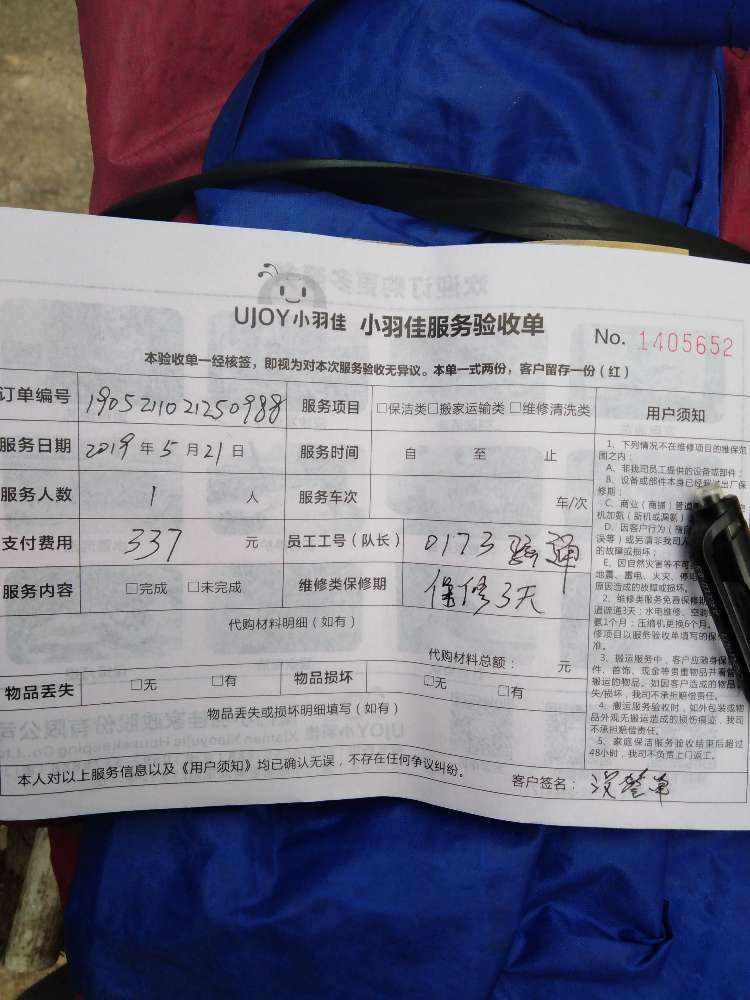 UJOY小羽佳 小羽佳服务验收单 No. 1405652
本验收单一经核签，即视为对本次服务验收无异议。本单一式两份，客户留存一份（红）
订单编号 1905211021250988 服务项目 □保洁类□搬家运输类□维修清洗类
服务日期 2019 年 5 月 21 日 服务时间 自 至 止
服务人数 1 人 服务车次 车/次
支付费用 337 元 员工工号（队长） 0173 通
服务内容 □完成 □未完成 维修类保修期 保修3天
代购材料明细（如有）
代购材料总额： 元
物品丢失 □无 □有 物品损坏 □无 □有
物品丢失或损坏明细填写（如有）
本人对以上服务信息以及《用户须知》均已确认无误，不存在任何争议纠纷。 客户签名：
用户须知
1、下列情况不在维修项目的维保范
围之内：
A、非我司员工提供的设备或部件；
B、设备或部件本身已经 出厂保
修期；
C、商业（商铺）管道
机加氨（新机或漏氨）
D、因客户行为
误等）或另请非我司人
的故障或损坏；
E、因自然灾害等不可
地震、雷电、火灾、停电
原因造成的故障或损坏。
2、维修类服务免费保修期
道疏通3天；水电维修、空调
氨1个月；压缩机更换6个月。
修项目以服务验收单填写的保
准。
3、搬运服务中，客户应随身保
件、首饰、现金等贵重物品并看管
搬运的物品。如因客户造成的物品
失/损坏，我司不承担赔偿责任。
4、搬运服务验收时，如外包装或物
品外观无搬运造成的损伤痕迹，我司
不承担赔偿责任。
5、家庭保洁服务验收结束后超过
48小时，我司不负责上门返工。